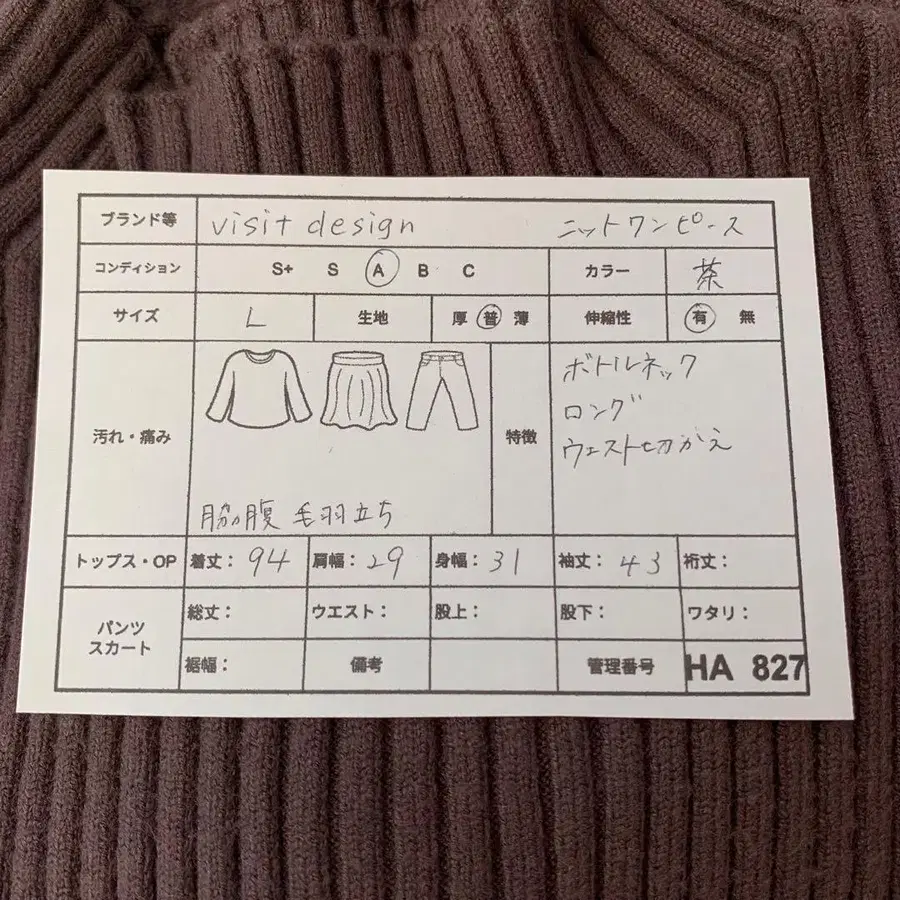 ブランド等 visit design ニットワンピース
コンディション S+ S A B C カラー 茶
サイズ L 生地 厚 普 薄 伸縮性 有 無
汚れ・痛み 脇の腹 毛羽立ち
特徴 ボトルネック
ロング
ウエスト切かえ
トップス・OP 着丈: 94 肩幅: 29 身幅: 31 袖丈: 43 裄丈:
パンツ スカート 総丈: ウエスト: 股上: 股下: ワタリ:
裾幅: 備考 管理番号 HA 827